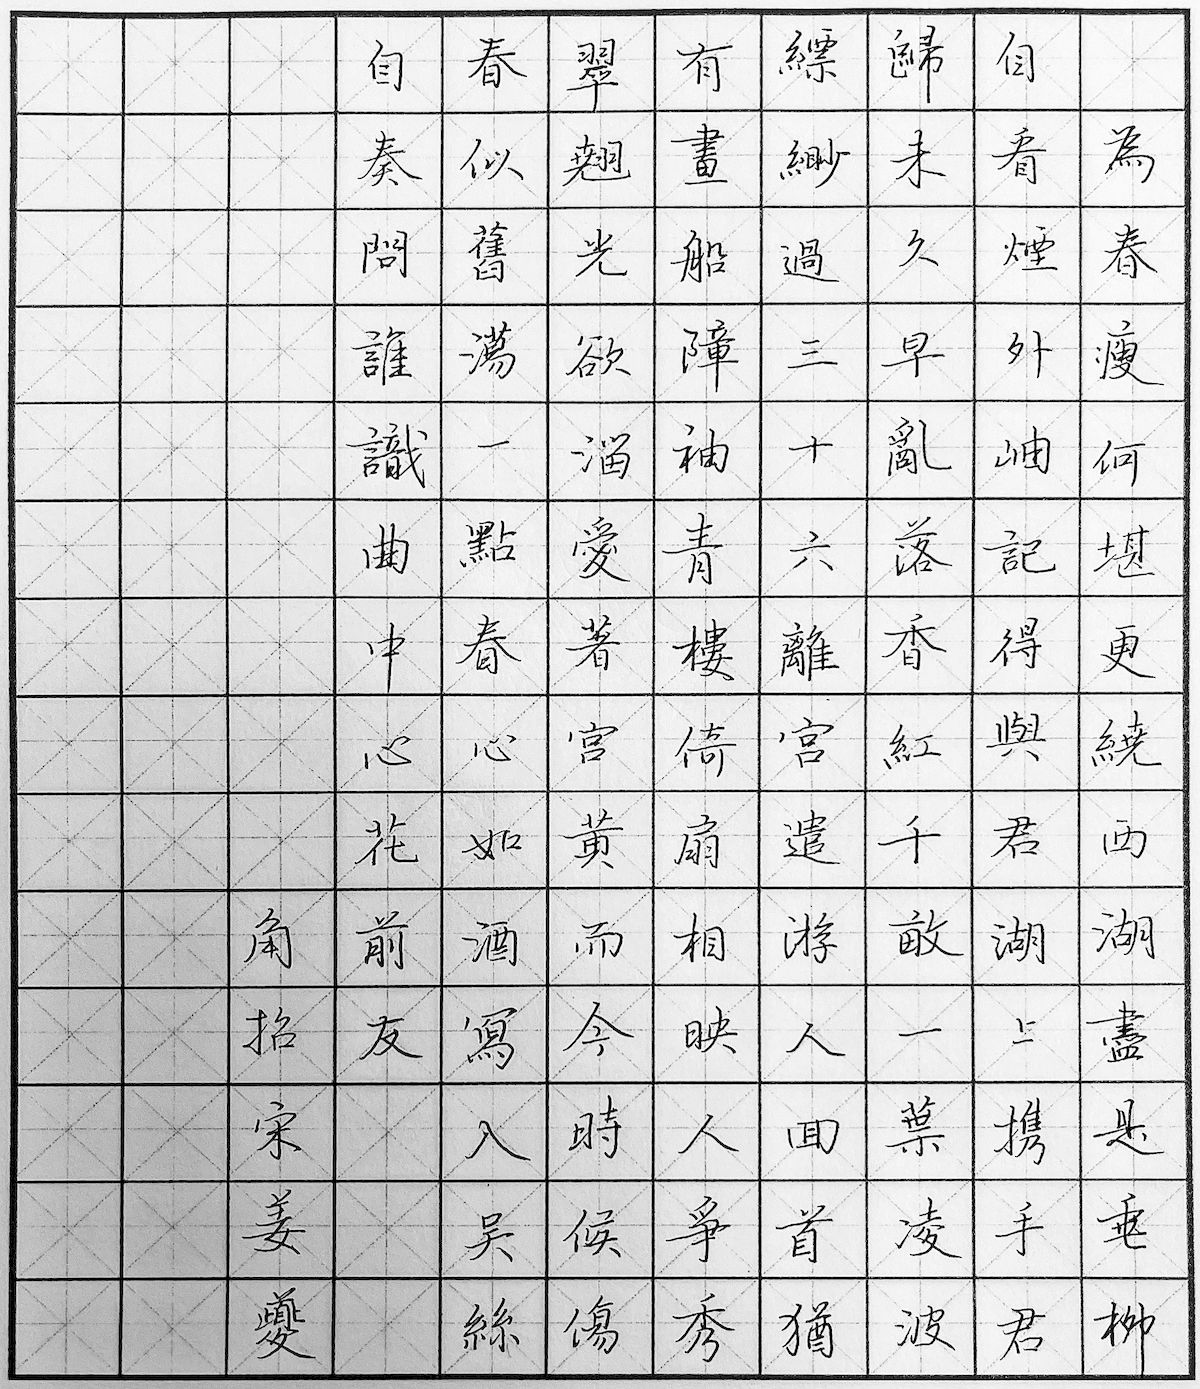 為春瘦何堪更繞西湖盡是垂柳
自看煙外岫記得與君湖上携手君
歸未久早亂落香紅千畝一葉凌波
縹緲過三十六離宮遣游人回首猶
有畫船障袖青樓倚扇相映人爭秀
翠翹光欲溜愛著宮黃而今時候傷
春似舊蕩一點春心如酒寫入吳絲
自奏問誰識曲中心花前友
角招宋姜夔